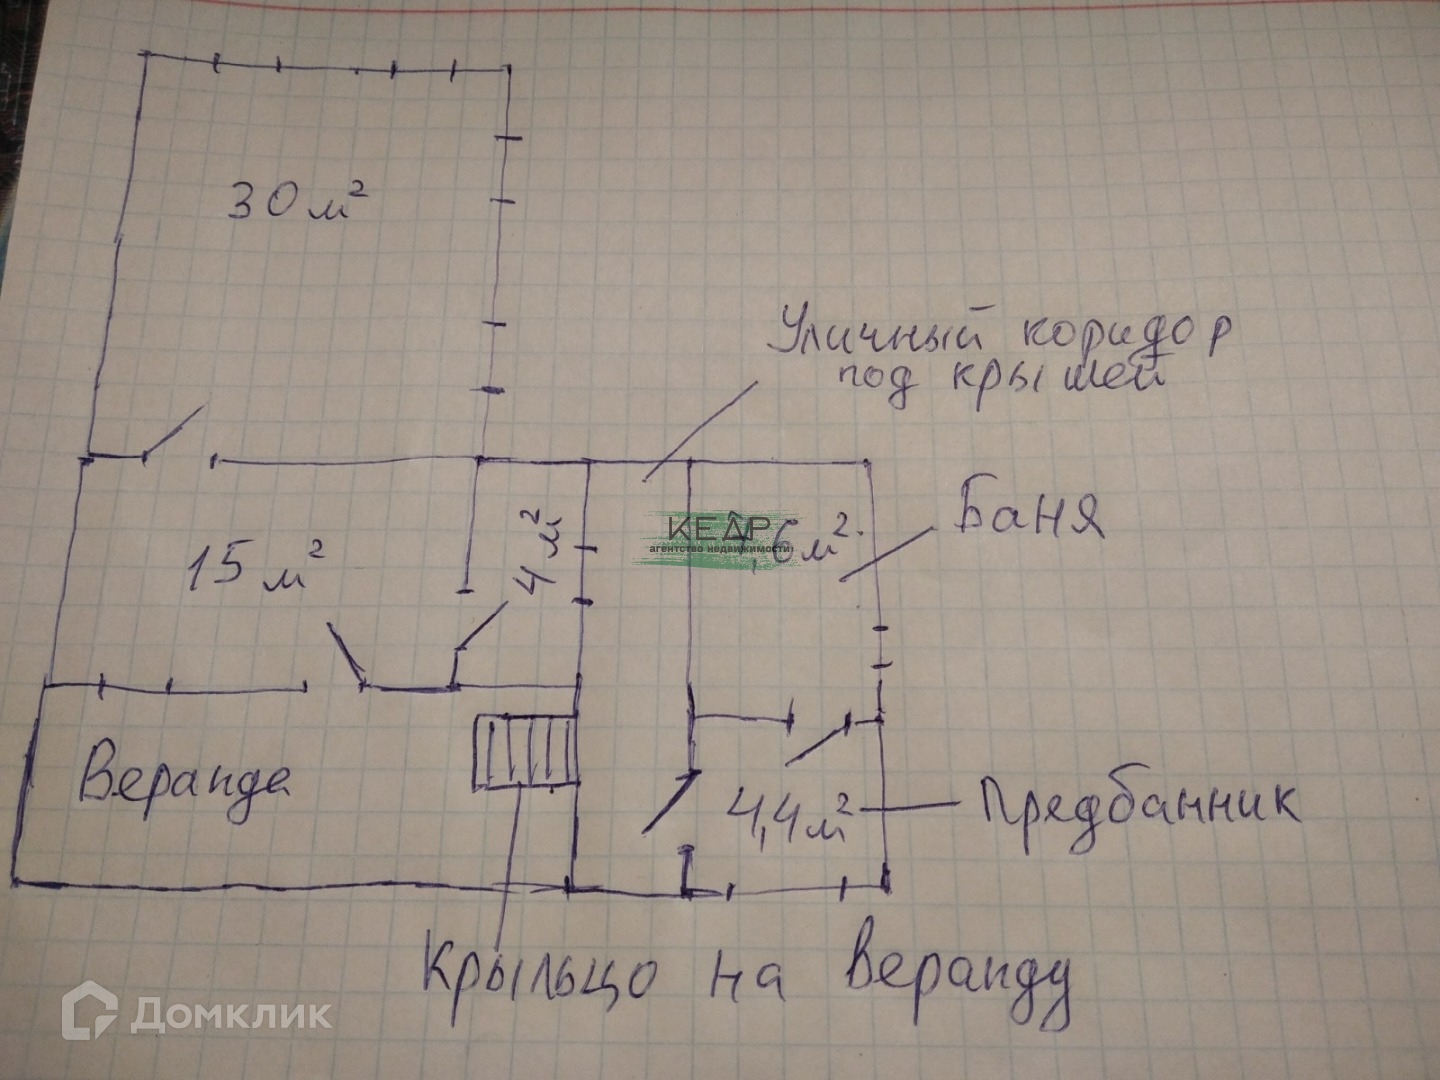 30 м²
Уличный коридор
под крышей
Баня
КЕДР
агентство недвижимости
,6 м²
15 м²
4 м²
Веранда
4,4 м²
Предбанник
Крыльцо на веранду
Домклик